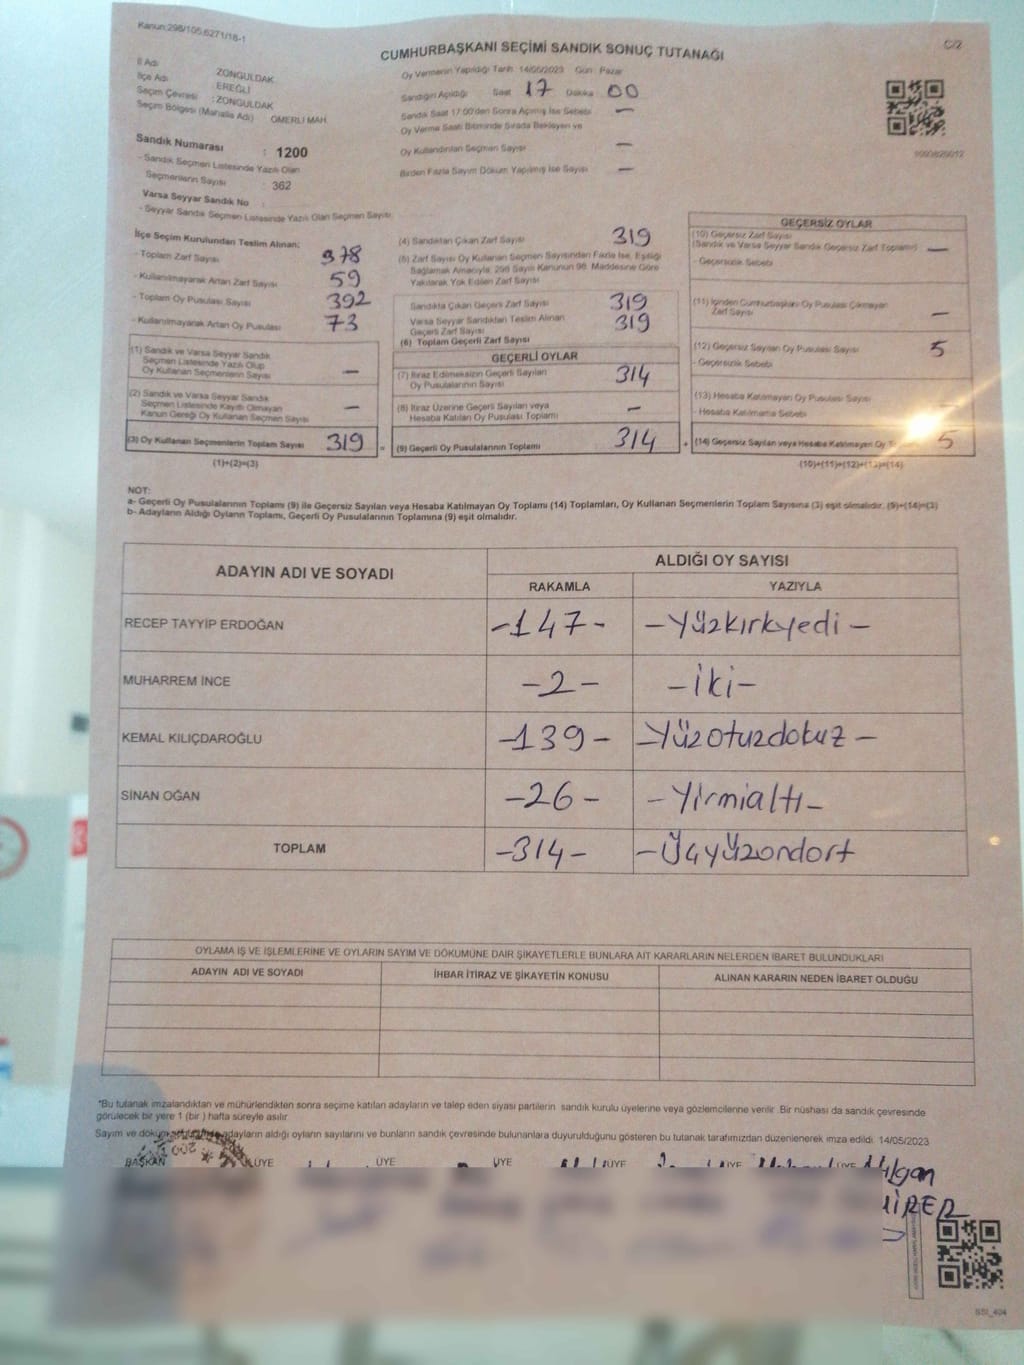 Kanun:298/105,6271/18-1
C/2
CUMHURBAŞKANI SEÇİMİ SANDIK SONUÇ TUTANAĞI
İl Adı : ZONGULDAK
İlçe Adı : EREĞLİ
Seçim Çevresi : ZONGULDAK
Seçim Bölgesi (Mahalle Adı) : ÖMERLİ MAH.
Oy Vermenin Yapıldığı Tarih: 14/05/2023 Gün : Pazar
Sandığın Açıldığı Saat 17 Dakika 00
Sandık Saat 17:00'den Sonra Açılmış İse Sebebi —
Oy Verme Saati Bitiminde Sırada Bekleyen ve
Oy Kullandırılan Seçmen Sayısı —
Birden Fazla Sayım Döküm Yapılmış İse Sayısı —
Sandık Numarası : 1200
- Sandık Seçmen Listesinde Yazılı Olan
Seçmenlerin Sayısı : 362
Varsa Seyyar Sandık No
- Seyyar Sandık Seçmen Listesinde Yazılı Olan Seçmen Sayısı
İlçe Seçim Kurulundan Teslim Alınan:
- Toplam Zarf Sayısı 378
- Kullanılmayarak Artan Zarf Sayısı 59
- Toplam Oy Pusulası Sayısı 392
- Kullanılmayarak Artan Oy Pusulası 73
(1) Sandık ve Varsa Seyyar Sandık
Seçmen Listesinde Yazılı Olup
Oy Kullanan Seçmenlerin Sayısı —
(2) Sandık ve Varsa Seyyar Sandık
Seçmen Listesinde Kayıtlı Olmayan
Kanun Gereği Oy Kullanan Seçmen Sayısı —
(3) Oy Kullanan Seçmenlerin Toplam Sayısı 319
(1)+(2)=(3)
(4) Sandıktan Çıkan Zarf Sayısı 319
(5) Zarf Sayısı Oy Kullanan Seçmen Sayısından Fazla İse, Eşitliği
Sağlamak Amacıyla, 298 Sayılı Kanunun 98. Maddesine Göre
Yakılarak Yok Edilen Zarf Sayısı
Sandıkta Çıkan Geçerli Zarf Sayısı 319
Varsa Seyyar Sandıktan Teslim Alınan
Geçerli Zarf Sayısı 319
(6) Toplam Geçerli Zarf Sayısı
GEÇERLİ OYLAR
(7) İtiraz Edilmeksizin Geçerli Sayılan
Oy Pusulalarının Sayısı 314
(8) İtiraz Üzerine Geçerli Sayılan veya
Hesaba Katılan Oy Pusulası Toplamı —
= (9) Geçerli Oy Pusulalarının Toplamı 314 +
GEÇERSİZ OYLAR
(10) Geçersiz Zarf Sayısı
(Sandık ve Varsa Seyyar Sandık Geçersiz Zarf Toplamı) —
- Geçersizlik Sebebi
(11) İçinden Cumhurbaşkanı Oy Pusulası Çıkmayan
Zarf Sayısı —
(12) Geçersiz Sayılan Oy Pusulası Sayısı 5
- Geçersizlik Sebebi
(13) Hesaba Katılmayan Oy Pusulası Sayısı
- Hesaba Katılmama Sebebi
(14) Geçersiz Sayılan veya Hesaba Katılmayan Oy 5
(10)+(11)+(12)+(13)=(14)
NOT:
a- Geçerli Oy Pusulalarının Toplamı (9) ile Geçersiz Sayılan veya Hesaba Katılmayan Oy Toplamı (14) Toplamları, Oy Kullanan Seçmenlerin Toplam Sayısına (3) eşit olmalıdır. (9)+(14)=(3)
b- Adayların Aldığı Oyların Toplamı, Geçerli Oy Pusulalarının Toplamına (9) eşit olmalıdır.
ADAYIN ADI VE SOYADI
ALDIĞI OY SAYISI
RAKAMLA YAZIYLA
RECEP TAYYİP ERDOĞAN -147- -Yüzkırkyedi-
MUHARREM İNCE -2- -İki-
KEMAL KILIÇDAROĞLU -139- -Yüzotuzdokuz-
SİNAN OĞAN -26- -Yirmialtı-
TOPLAM -314- -Üçyüzondört
OYLAMA İŞ VE İŞLEMLERİNE VE OYLARIN SAYIM VE DÖKÜMÜNE DAİR ŞİKAYETLERLE BUNLARA AİT KARARLARIN NELERDEN İBARET BULUNDUKLARI
ADAYIN ADI VE SOYADI İHBAR İTİRAZ VE ŞİKAYETİN KONUSU ALINAN KARARIN NEDEN İBARET OLDUĞU
*Bu tutanak imzalandıktan ve mühürlendikten sonra seçime katılan adayların ve talep eden siyasi partilerin sandık kurulu üyelerine veya gözlemcilerine verilir .Bir nüshası da sandık çevresinde
görülecek bir yere 1 (bir ) hafta süreyle asılır.
Sayım ve döküm adayların aldığı oyların sayılarını ve bunların sandık çevresinde bulunanlara duyurulduğunu gösteren bu tutanak tarafımızdan düzenlenerek imza edildi. 14/05/2023
BAŞKAN ÜYE ÜYE ÜYE ÜYE ÜYE ÜYE